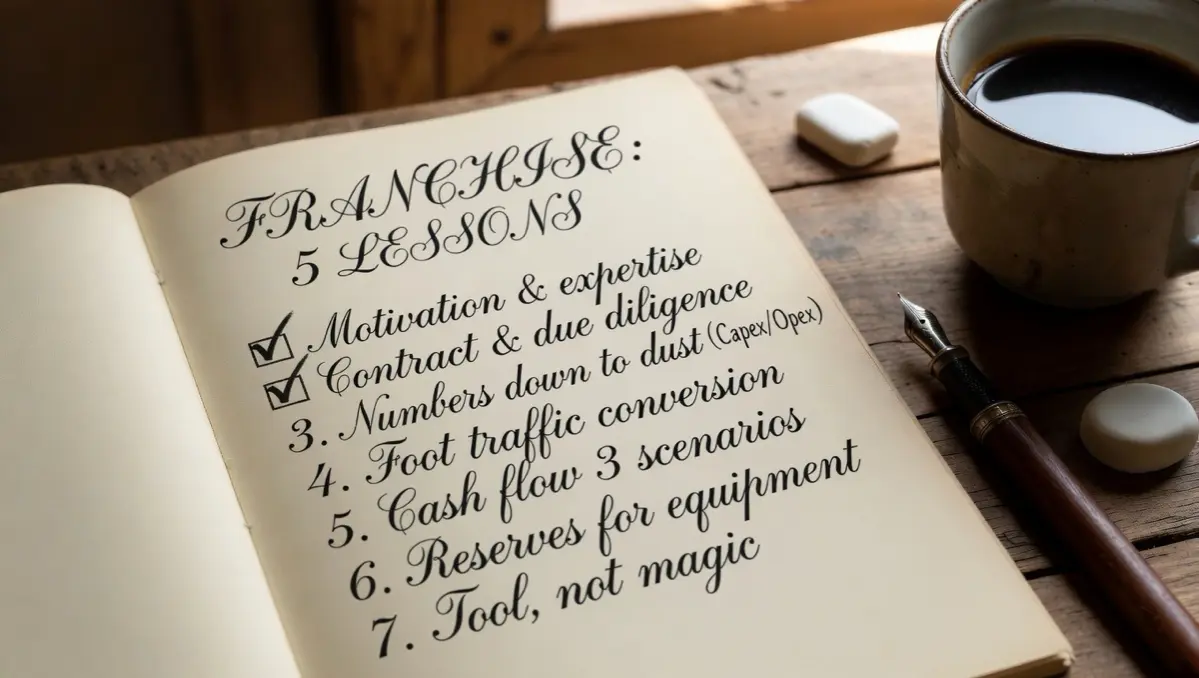 FRANCHISE:
5 LESSONS
Motivation & expertise
Contract & due diligence
3. Numbers down to dust (Capex/Opex)
4. Foot traffic conversion
5. Cash flow 3 scenarios
6. Reserves for equipment
7. Tool, not magic